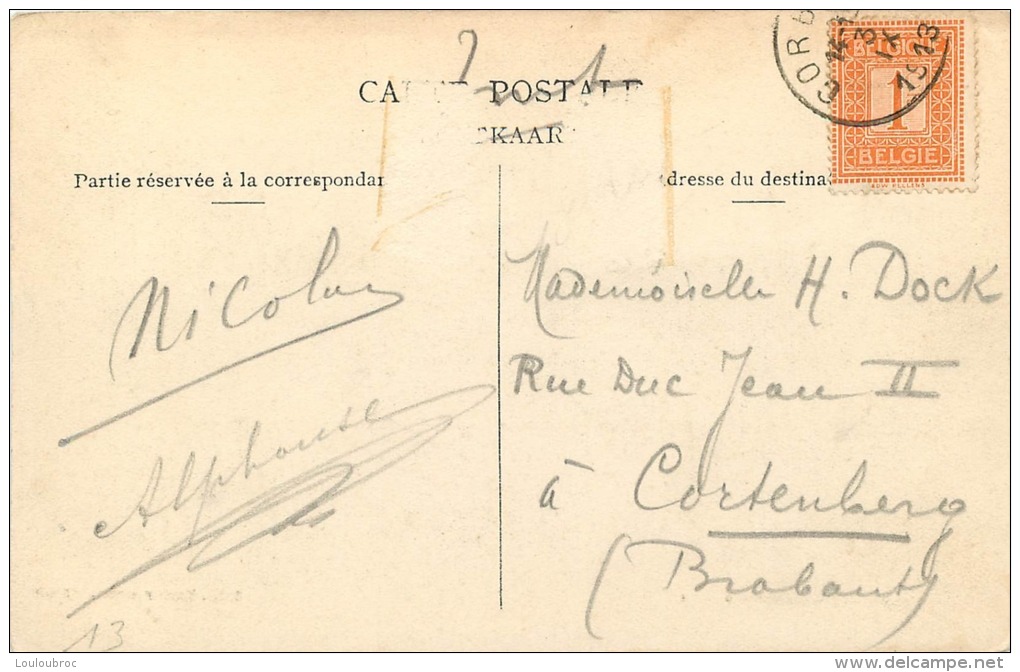 CA POSTALE
KAAR
Partie réservée à la correspondan
dresse du destina
BELGIQUE
1
BELGIE
COR
3
IX
1913
Nicolas
Alphonse
Mademoiselle H. Dock
Rue Duc Jean II
à Cortenberg
(Brabant)
13
Louloubroc
delcampe.net